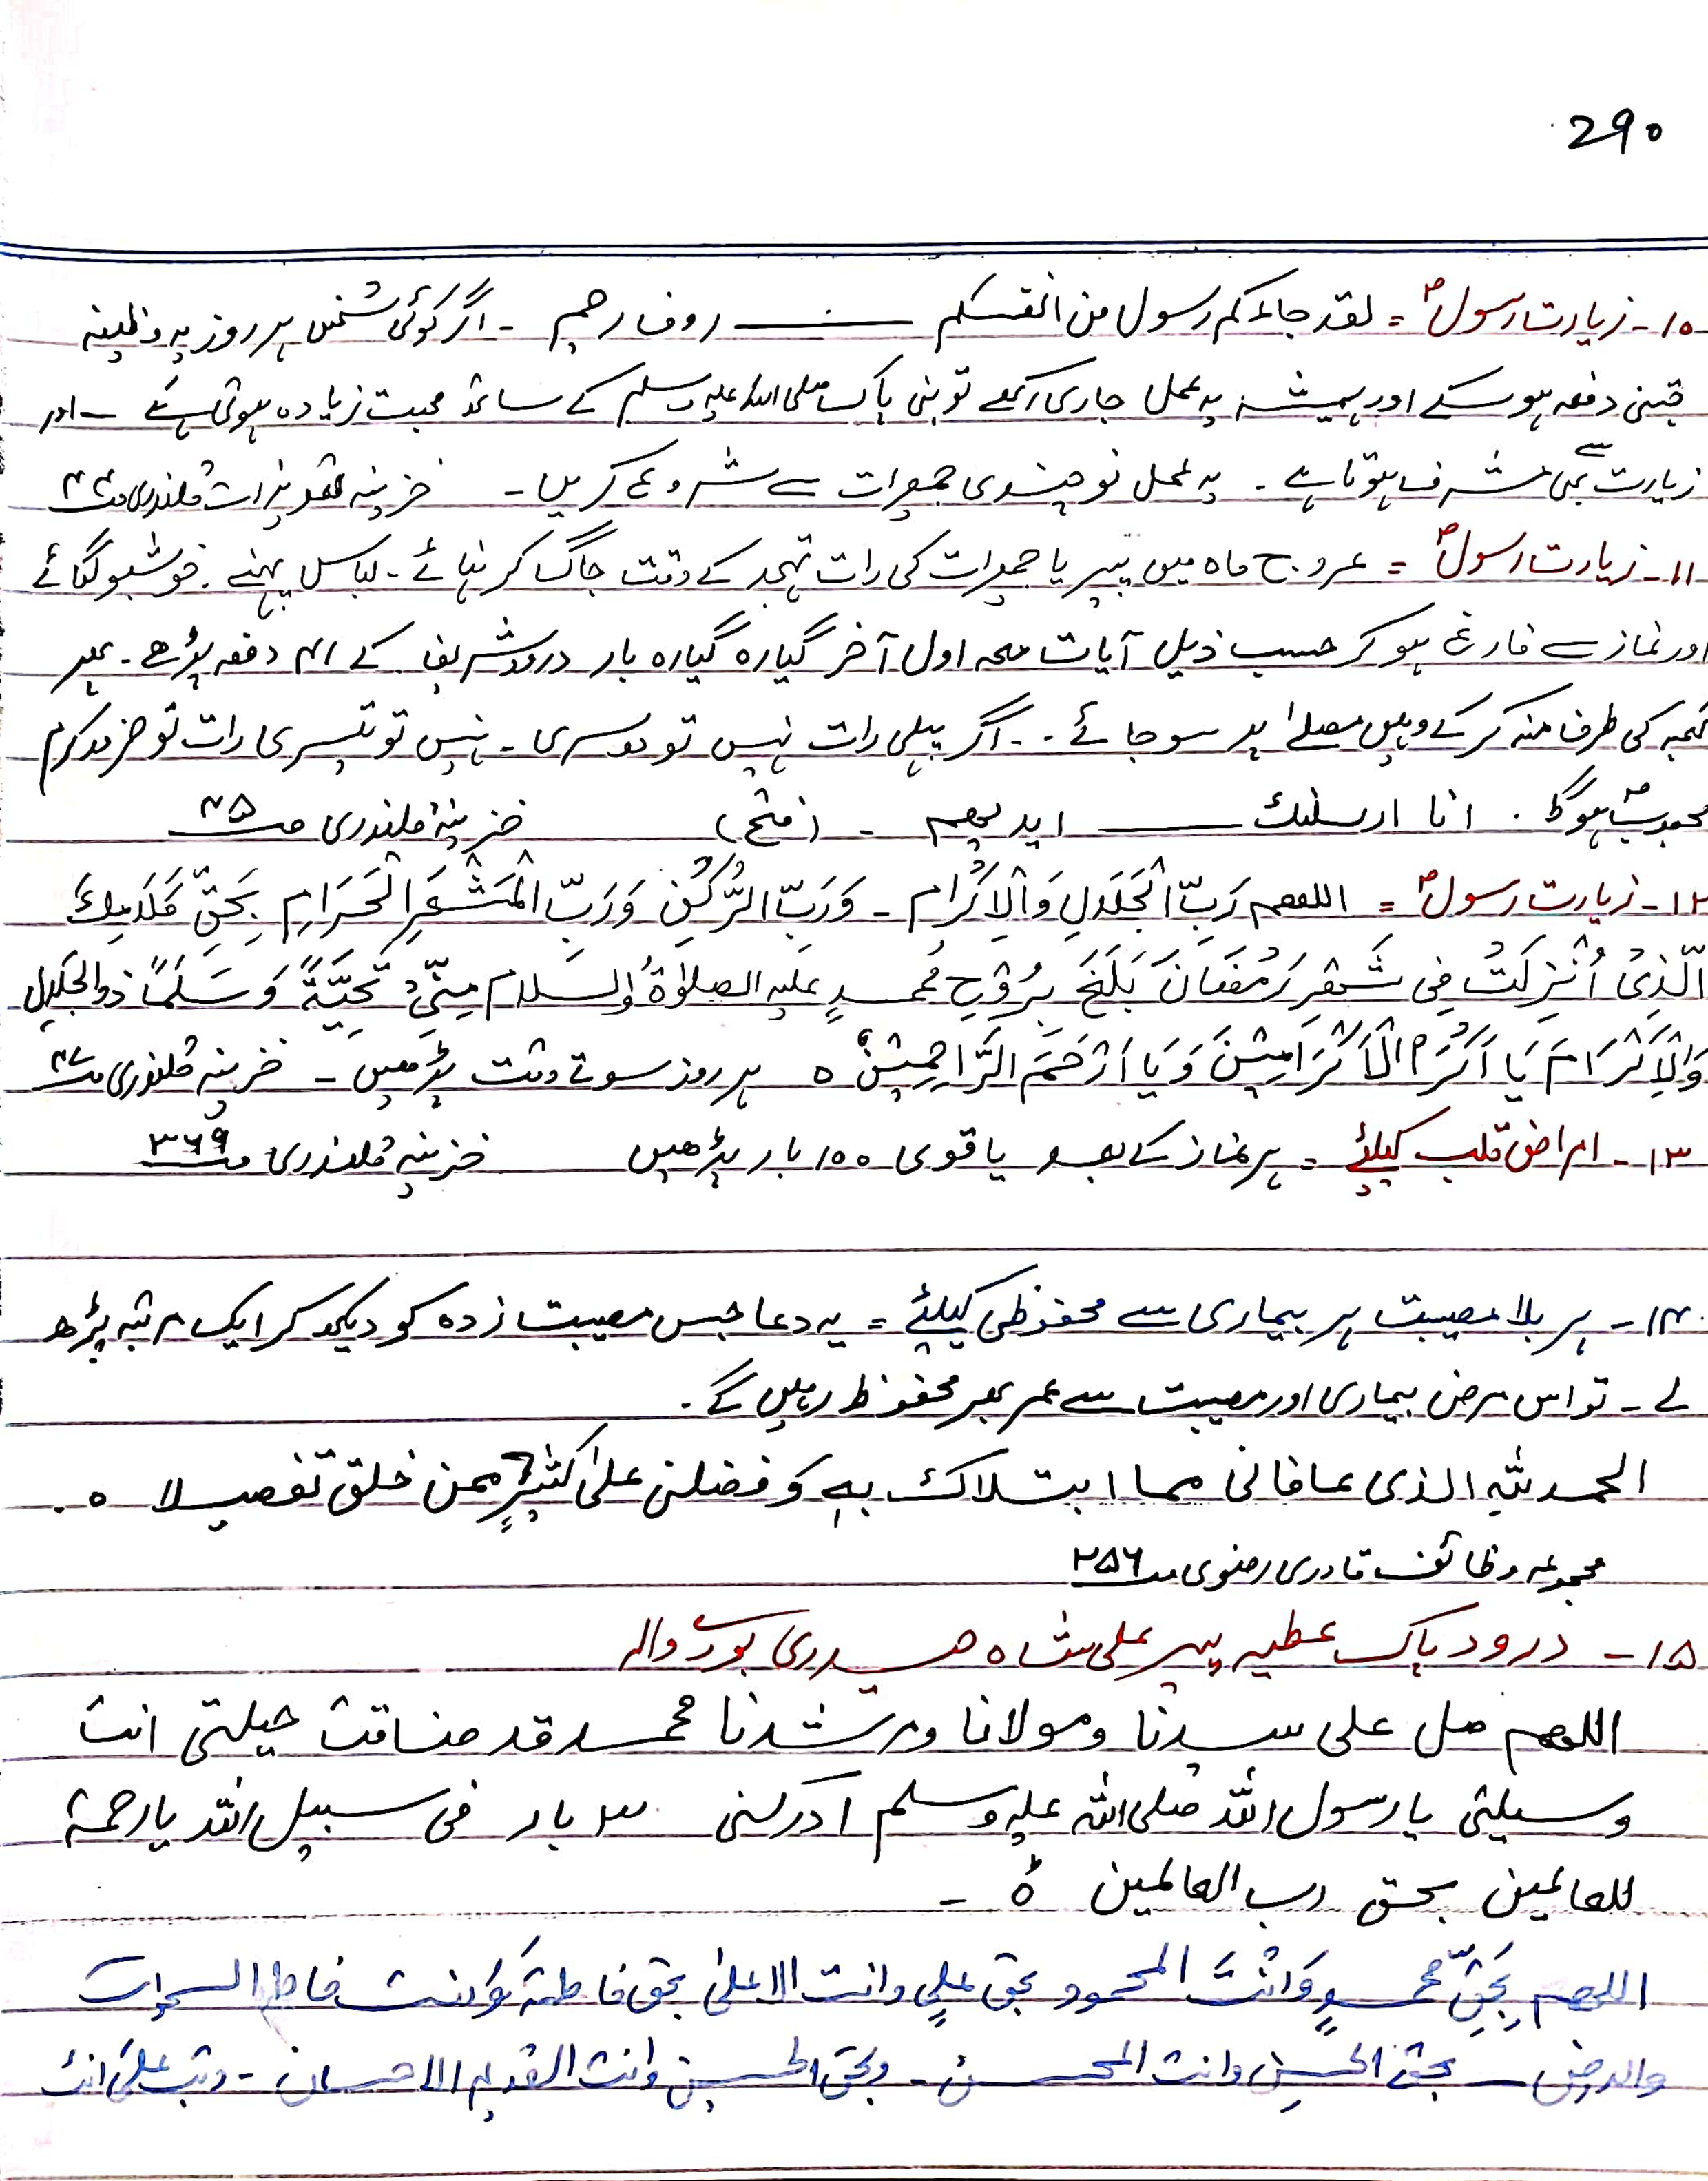 290
۱۰- زیارت رسولؐ = لقد جاءکم رسول من انفسکم ــــــ روف رحیم - اگر کوئی شخص ہر روز یہ وظیفہ
جتنی دفعہ ہو سکے اور ہمیشہ یہ عمل جاری رکھے تو نبی پاک صلی اللہ علیہ وسلم کے ساتھ محبت زیادہ ہوتی ہے - اور
زیارت سے بھی مشرف ہوتا ہے - یہ عمل نوچندی جمعرات سے شروع کریں - خزینہ تعویذات قلندری ص۴۴
۱۱- زیارت رسولؐ = عروج ماہ میں پیر یا جمعرات کی رات تہجد کے وقت جاگ کر نہائے - لباس پہنے خوشبو لگائے
اور نماز سے فارغ ہو کر حسب ذیل آیات معہ اول آخر گیارہ گیارہ بار درود شریف کے ۴۱ دفعہ پڑھے - پھر
کعبہ کی طرف منہ کر کے وہیں مصلےٰ پر سو جائے - اگر پہلی رات نہیں تو دوسری - نہیں تو تیسری رات تو ضرور کرم
محبوبؐ ہوگا . انا ارسلنک ــــــ ایدیھم - (فتح) خزینہ قلندری ص۴۵
۱۲- زیارت رسولؐ = اللھم رَبِّ الْجَلَالِ وَالْاِکْرَام - وَرَبِّ الرُّکْنِ وَرَبِّ الْمَشْعَرِ الْحَرَامِ بِحَقِّ کَلَامِکَ
الَّذِیْ اُنْزِلَتْ فِی شَھْرِ رَمْضَانَ بَلَغَ بِرُوْحِ مُحمدٍ علیہ الصلوٰۃُ والسَلام مِنِّیْ تَحِیَّۃً وَ سَلَمًا ذوالجلال
وَالْاِکْرَامَ یَا اَکْرَمَ الْاَکْرَامِیْنَ وَ یَا اَرْحَمَ الرَّاحِمِیْنْ ہ ہر روز سوتے وقت پڑھیں - خزینہ قلندری
۱۳- امراض قلب کیلئے = ہر نماز کے بعد یا قوی ۱۰۰ بار پڑھیں خزینہ قلندری ص۳۶۹
۱۴- ہر بلا مصیبت ہر بیماری سے محفوظی کیلئے = یہ دعا جس مصیبت زدہ کو دیکھ کر ایک مرتبہ پڑھ
لے - تو اس مرض بیماری اور مصیبت سے عمر بھر محفوظ رہیں گے .
الحمد للہِ الذی عافانی مما ابتلاک بہٖ وَ فضلنی علیٰ کثیرٍ ممن خلق تفصیلا ہ .
مجموعہ وظائف قادری رضوی ص۲۵۶
۱۵- درود پاک عطیہ پیر علی شاہ حیدری بورے والہ
اللھم صل علی سیدنا ومولانا ومرشدنا محمد قد ضاقت حیلتی انت
وسیلتی یا رسول اللہ صلی اللہ علیہ وسلم ادرکنی ۳ بار فی سبیل اللہ یا رحمۃ
للعالمین بحق رب العالمین ہ -
اللھم بِحَقِّ محمدٍ وَ اَنْتَ المحمود بحق علیٍ وانت الاعلیٰ بحق فاطمۃ وَانت فاطر السموات
والارض - بحق الحسنِ وانت المحسن - وبحق الحسین وانت القدیم الاحسان - وتب علیَ انت